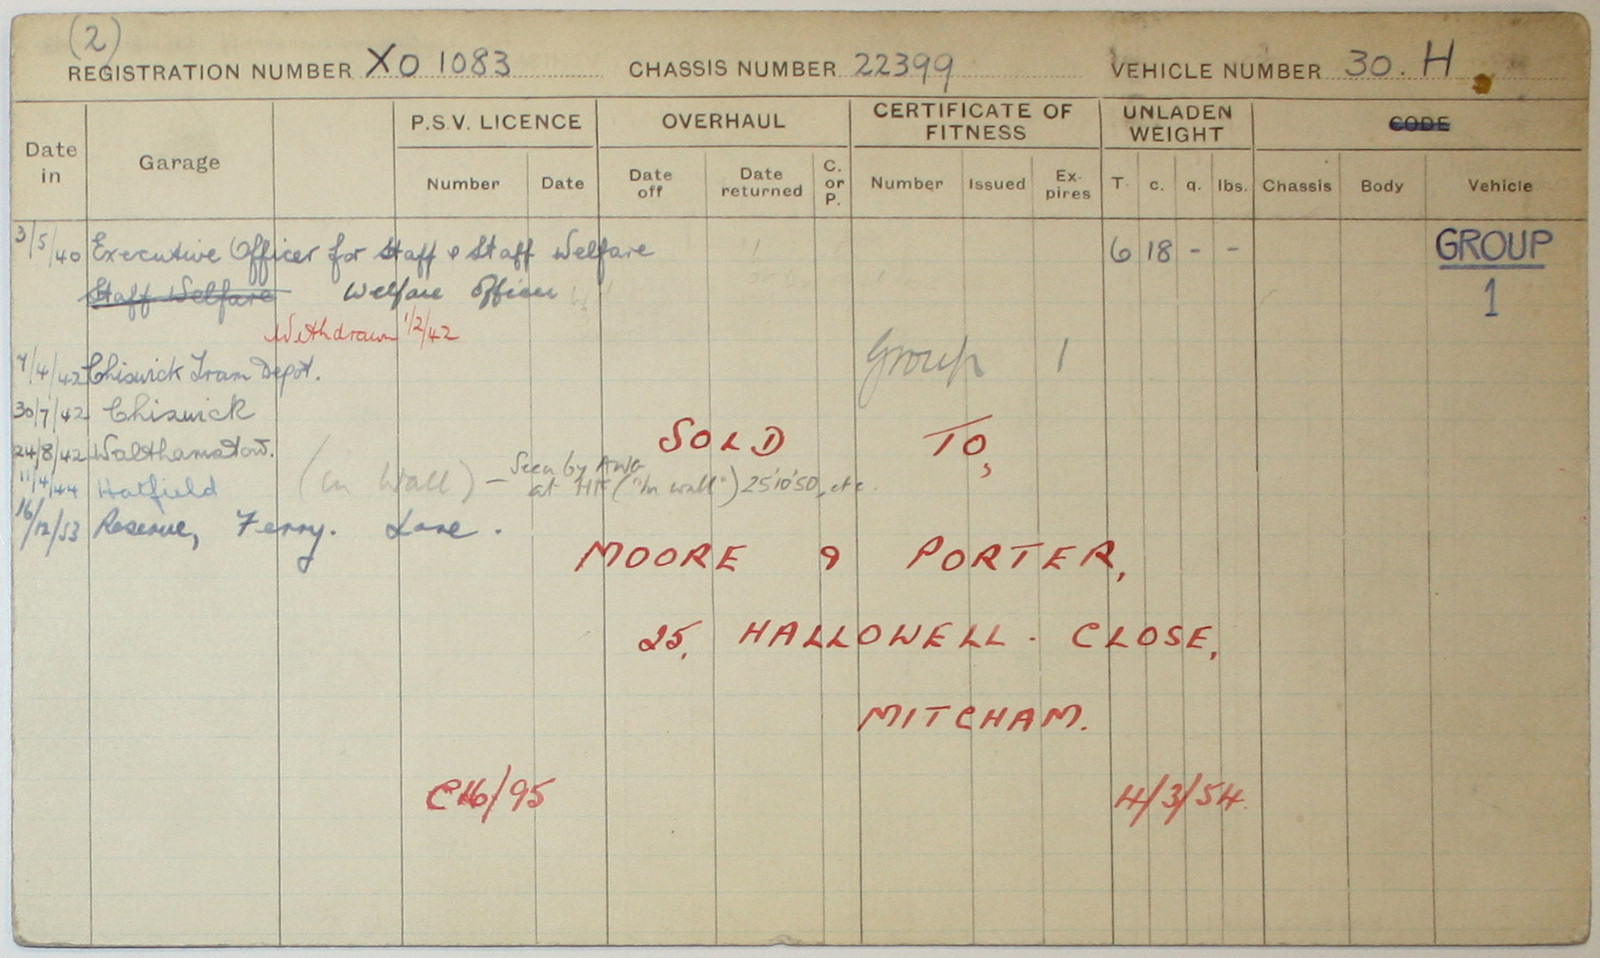 (2)
REGISTRATION NUMBER XO 1083 CHASSIS NUMBER 22399 VEHICLE NUMBER 30. H
Date in Garage P.S.V. LICENCE OVERHAUL CERTIFICATE OF FITNESS UNLADEN WEIGHT CODE
Number Date Date off Date returned C. or P. Number Issued Ex-pires T. c. q. lbs. Chassis Body Vehicle
3/5/40 Executive Officer for Staff & Staff Welfare 6 18 - - GROUP
Staff Welfare Welfare Officer 1
Withdrawn 1/2/42
7/4/42 Chiswick Tram Depôt. Group 1
30/7/42 Chiswick
SOLD TO,
24/8/42 Walthamstow.
11/4/44 Hatfield (in Wall) – Seen by AWG
at HF ("In wall") 25'10'50, etc.
16/12/53 Reserve, Ferry. Lane.
MOORE & PORTER,
25, HALLOWELL. CLOSE,
MITCHAM.
C16/95 4/3/54.